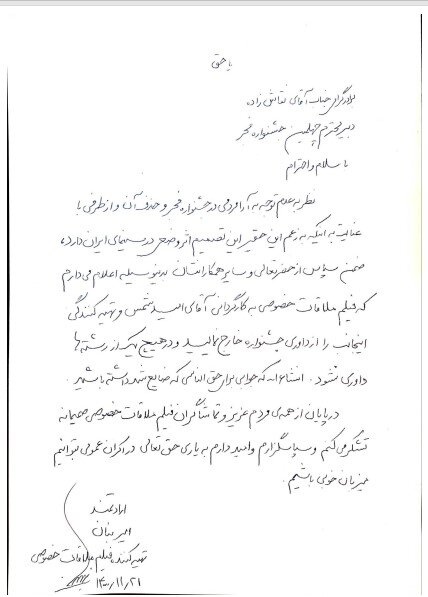 یا حق
برادر گرامی جناب آقای نقاش زاده
دبیر محترم چهلمین جشنواره فجر
با سلام و احترام
نظر به عدم توجه به آرا مردمی در جشنواره فجر و حذف آن و از طرفی با
عنایت به اینکه به زعم این حقیر این تصمیم اثر وضعی در سینمای ایران دارد،
ضمن سپاس از حضرتعالی و سایر همکارانتان بدینوسیله اعلام می دارم
که فیلم ملاقات خصوصی به کارگردانی آقای امید شمس و تهیه کنندگی
اینجانب را از داوری جشنواره خارج نمائید و در هیچ یک از رشته ها
داوری نشود. انشاءالله که جوابی برای حق الناسی که ضایع شد داشته باشید.
در پایان از همه ی مردم عزیز و تماشاگران فیلم ملاقات خصوصی صمیمانه
تشکر می کنم و سپاسگزارم و امید دارم به یاری حق تعالی در اکران عمومی بتوانیم
میزبان خوبی باشیم.
ارادتمند
امیر بنان
تهیه کننده فیلم ملاقات خصوصی
۱۴۰۰/۱۱/۲۱